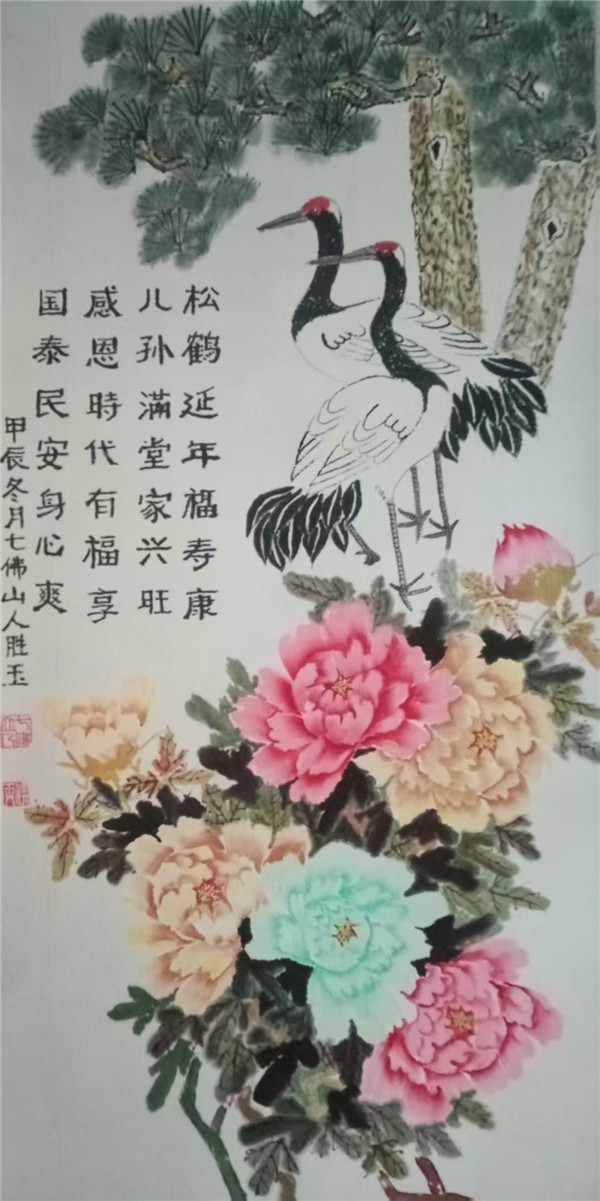 松鹤延年福寿康
儿孙满堂家兴旺
感恩時代有福享
国泰民安身心爽
甲辰冬月七佛山人胜玉